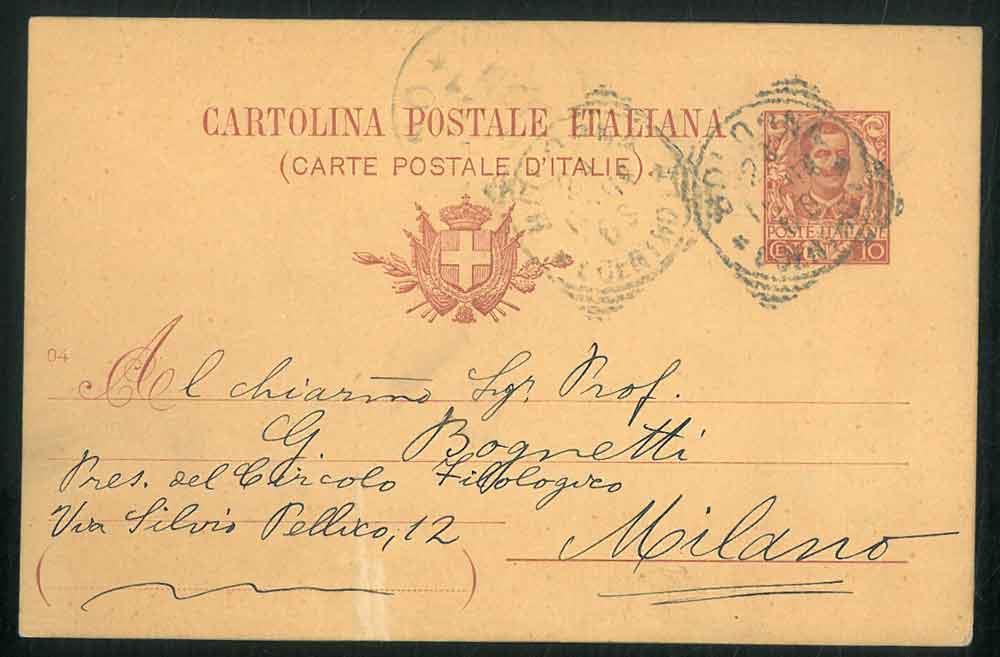 CARTOLINA POSTALE ITALIANA
(CARTE POSTALE D'ITALIE)
BOLOGNA
POSTE ITALIANE
CENT. 10
04
Al chiarmo Sigr. Prof.
G. Bognetti
Pres. del Circolo Filologico
Via Silvio Pellico, 12
Milano